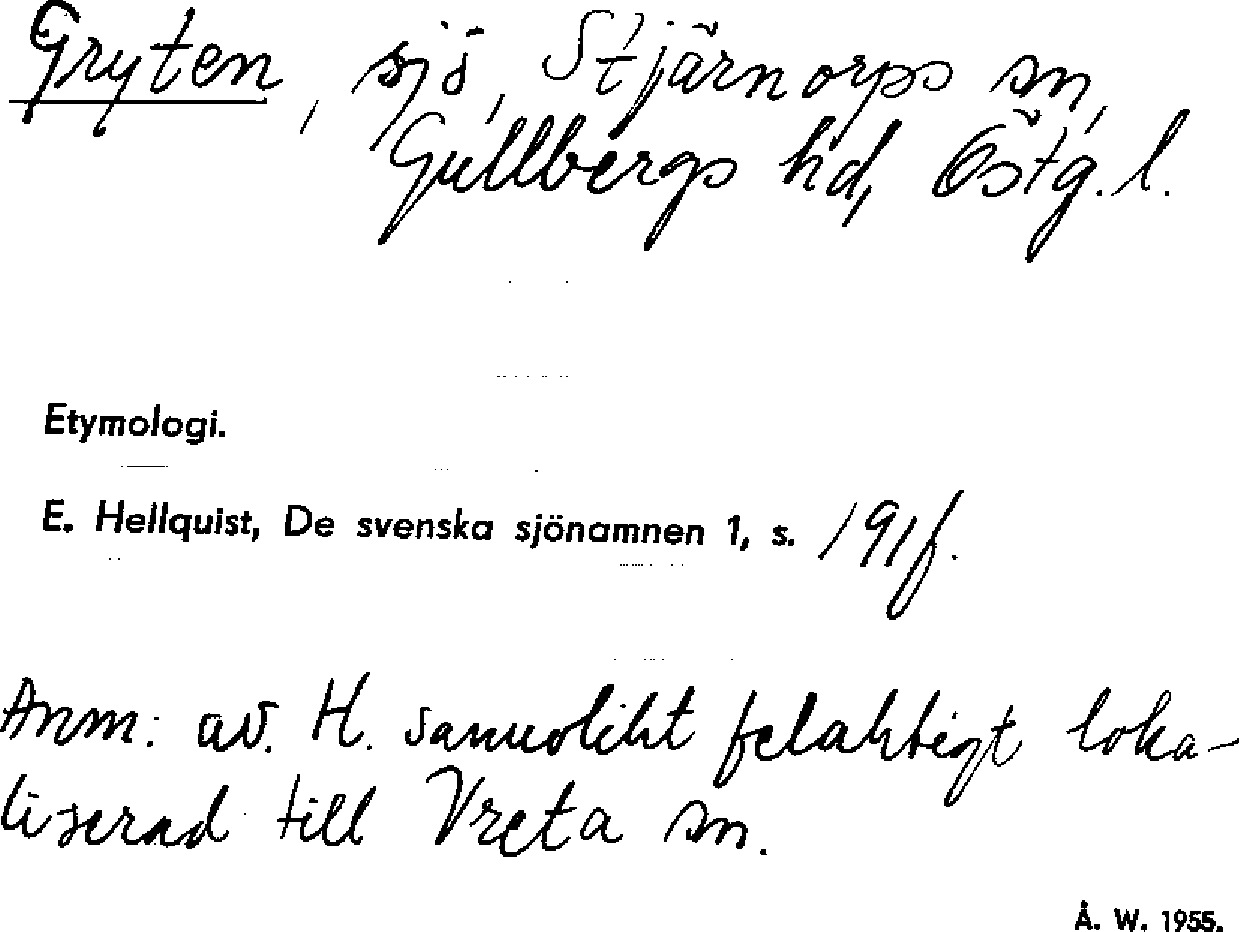 Gryten, sjö, Stjärnorps sn,
Gullbergs hd, Östg. l.
Etymologi.
E. Hellquist, De svenska sjönamnen 1, s. 191f.
Anm: av. H. sannolikt felaktigt loka-
liserad till Vreta sn.
Å. W. 1955.